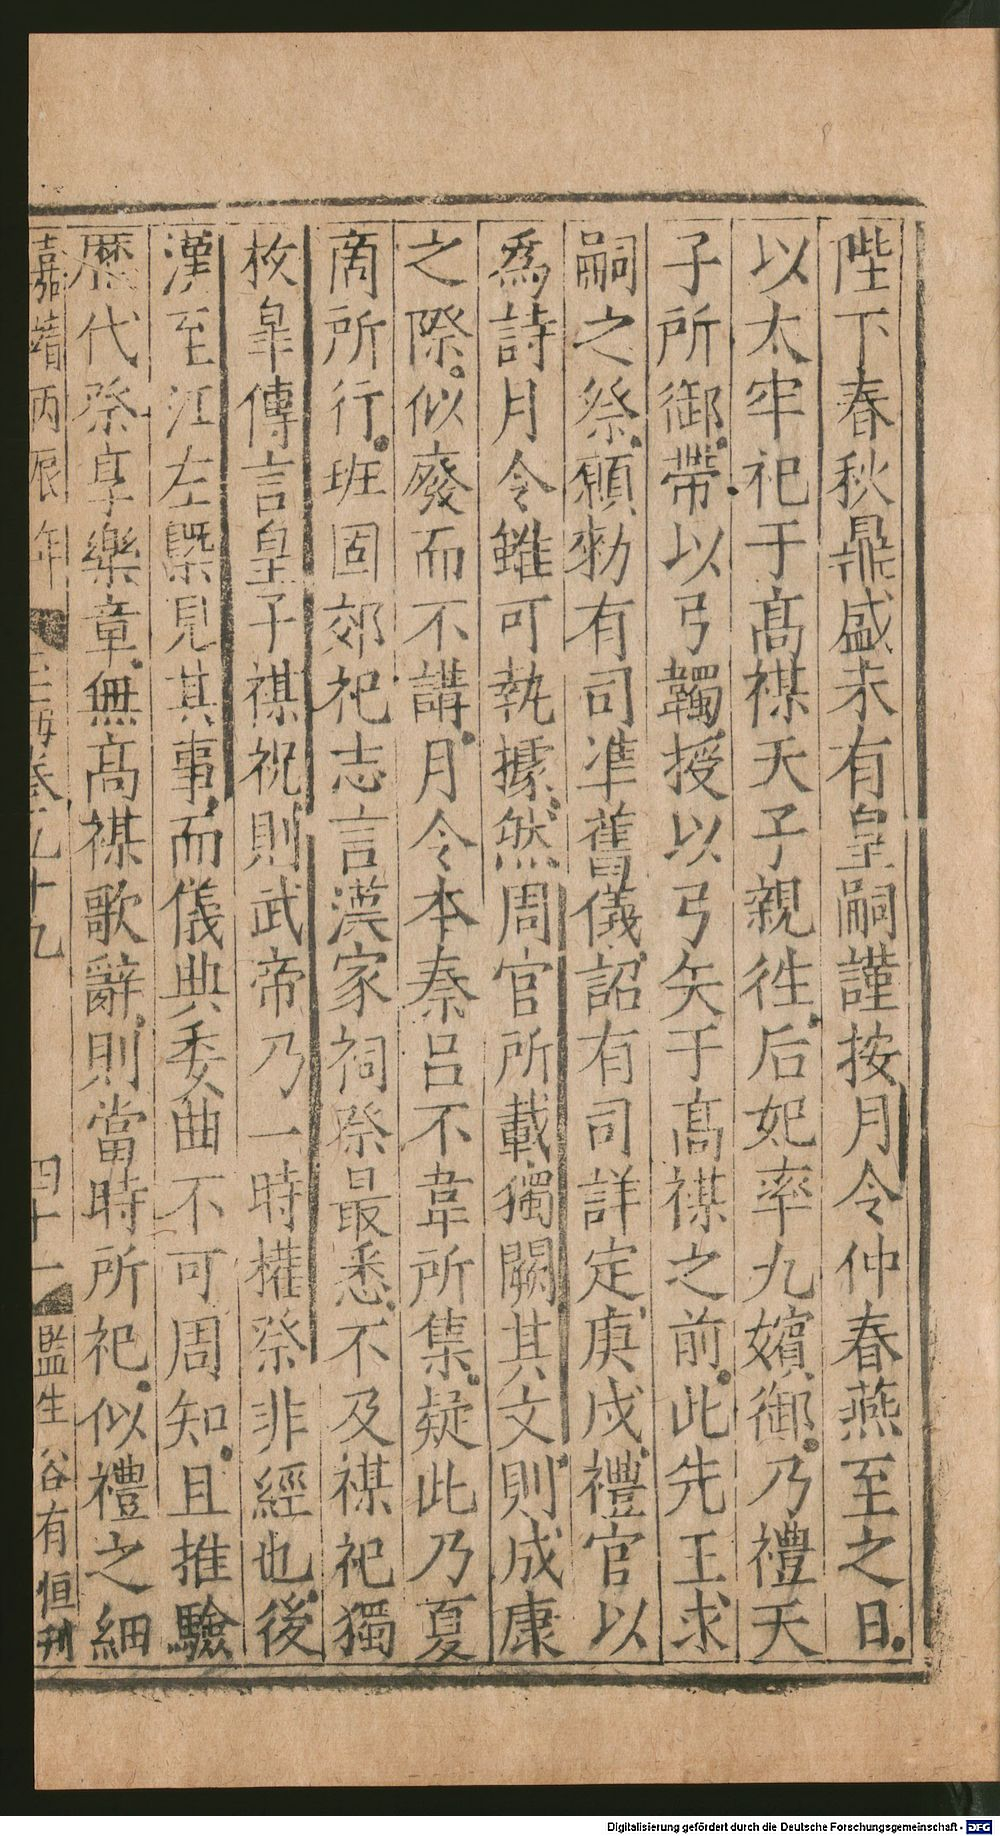 陛下春秋鼎盛未有皇嗣謹按月令仲春燕至之日
以太牢祀于高禖天子親徃后妃率九嬪御乃禮天
子所御帶以弓韣授以弓矢于高禖之前此先王求
嗣之祭願勑有司準舊儀詔有司詳定庚戍禮官以
為詩月令雖可執據然周官所載獨闕其文則成康
之際似廢而不講月令本秦呂不韋所集疑此乃夏
商所行班固郊祀志言漢家祠祭最悉不及禖祀獨
枚皐傳言皇子禖祝則武帝乃一時權祭非經也後
漢至江左槩見其事而儀典委曲不可周知且推驗
歷代祭享樂章無高禖歌辭則當時所祀似禮之細
嘉靖丙辰年 玉海卷之九十九 四十一 監生谷有恒刊
Digitalisierung gefördert durch die Deutsche Forschungsgemeinschaft - DFG